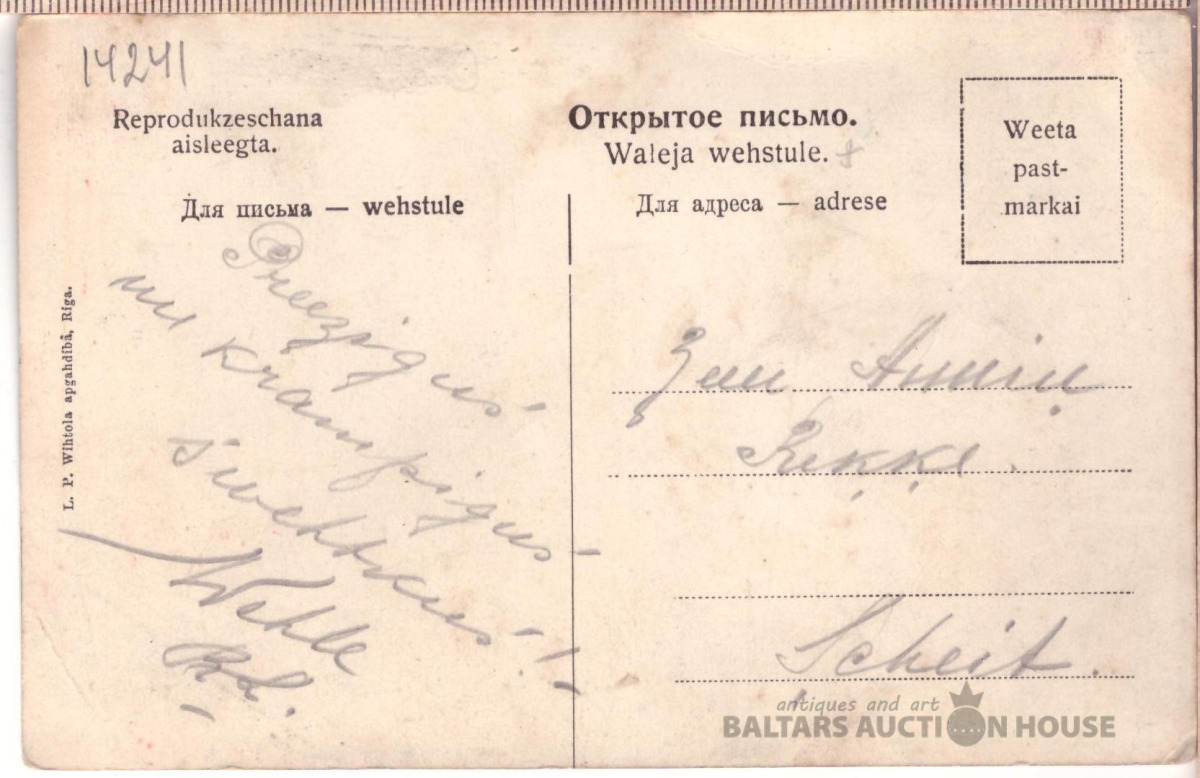 14241
Reprodukzeschana
aisleegta.
Открытое письмо.
Waleja wehstule.
Weeta
past-
markai
Для письма — wehstule
Для адреса — adrese
L. P. Wihtola apgahdibâ, Riga.
Preezigus
un krampigus
swehtkus!
Wehle
Annin
Scheit.
antiques and art
BALTARS AUCTION HOUSE